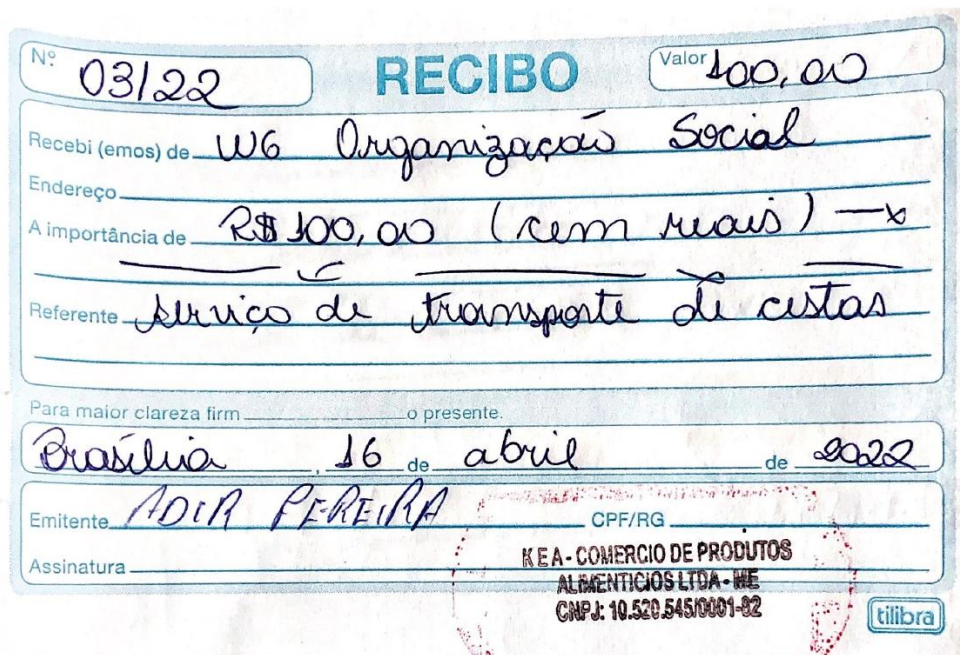 Nº 03/22 RECIBO Valor 100,00
Recebi (emos) de WG Organização Social
Endereço
A importância de R$100,00 (cem reais)
Referente serviço de transporte de cestas
Para maior clareza firm o presente.
Brasília, 16 de abril de 2022
Emitente ADIR PEREIRA CPF/RG
Assinatura
KEA - COMERCIO DE PRODUTOS
ALIMENTICIOS LTDA - ME
CNPJ: 10.520.545/0001-82
tilibra